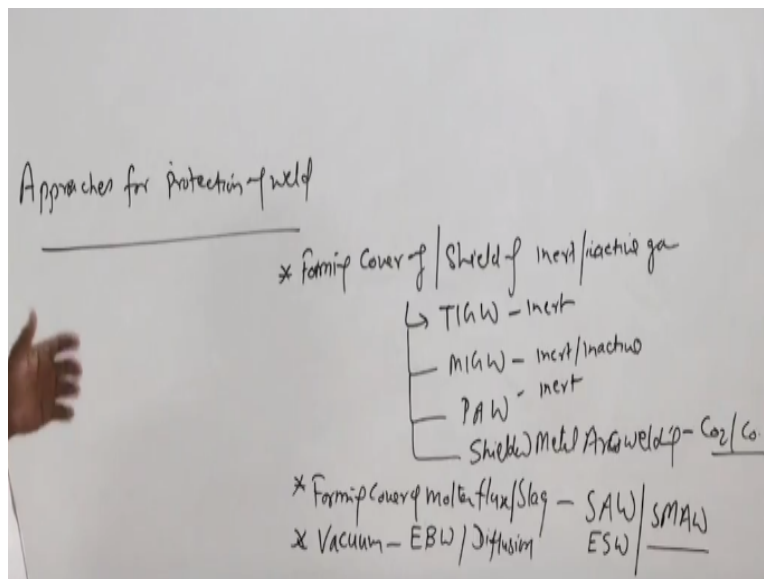 Approaches for protection of weld
* Forming Cover of / Shield of inert/inactive ga
↳ TIGW - Inert
MIGW - inert/inactive
PAW - inert
Shielded Metal Arc welding - CO2/CO.
* Forming Cover of molten flux/Slag - SAW/SMAW
ESW
* Vacuum - EBW/Diffusion